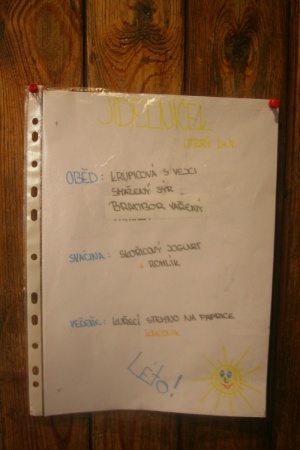 JÍDELNÍČEK
OBĚD: KRUPICOVÁ S VEJCI
SMAŽENÝ SÝR
BRAMBOR VAŘENÝ
SVAČINA: SKOŘICOVÝ JOGURT
+ ROHLÍK
VEČEŘE: KUŘECÍ STEHNO NA PAPRICE
KNEDLÍK
LÉTO!